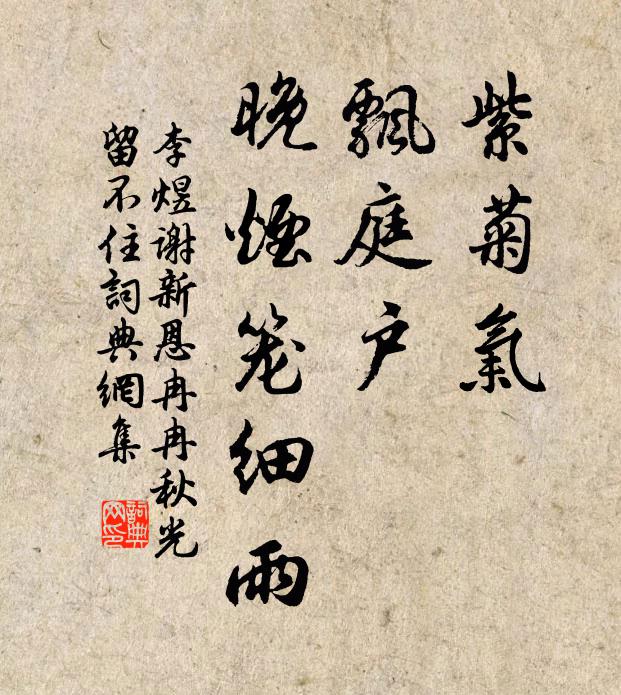 紫菊氣
飄庭户
晚煙笼細雨
李煜謝新恩冉冉秋光
留不住詞典網集
詞典
网印